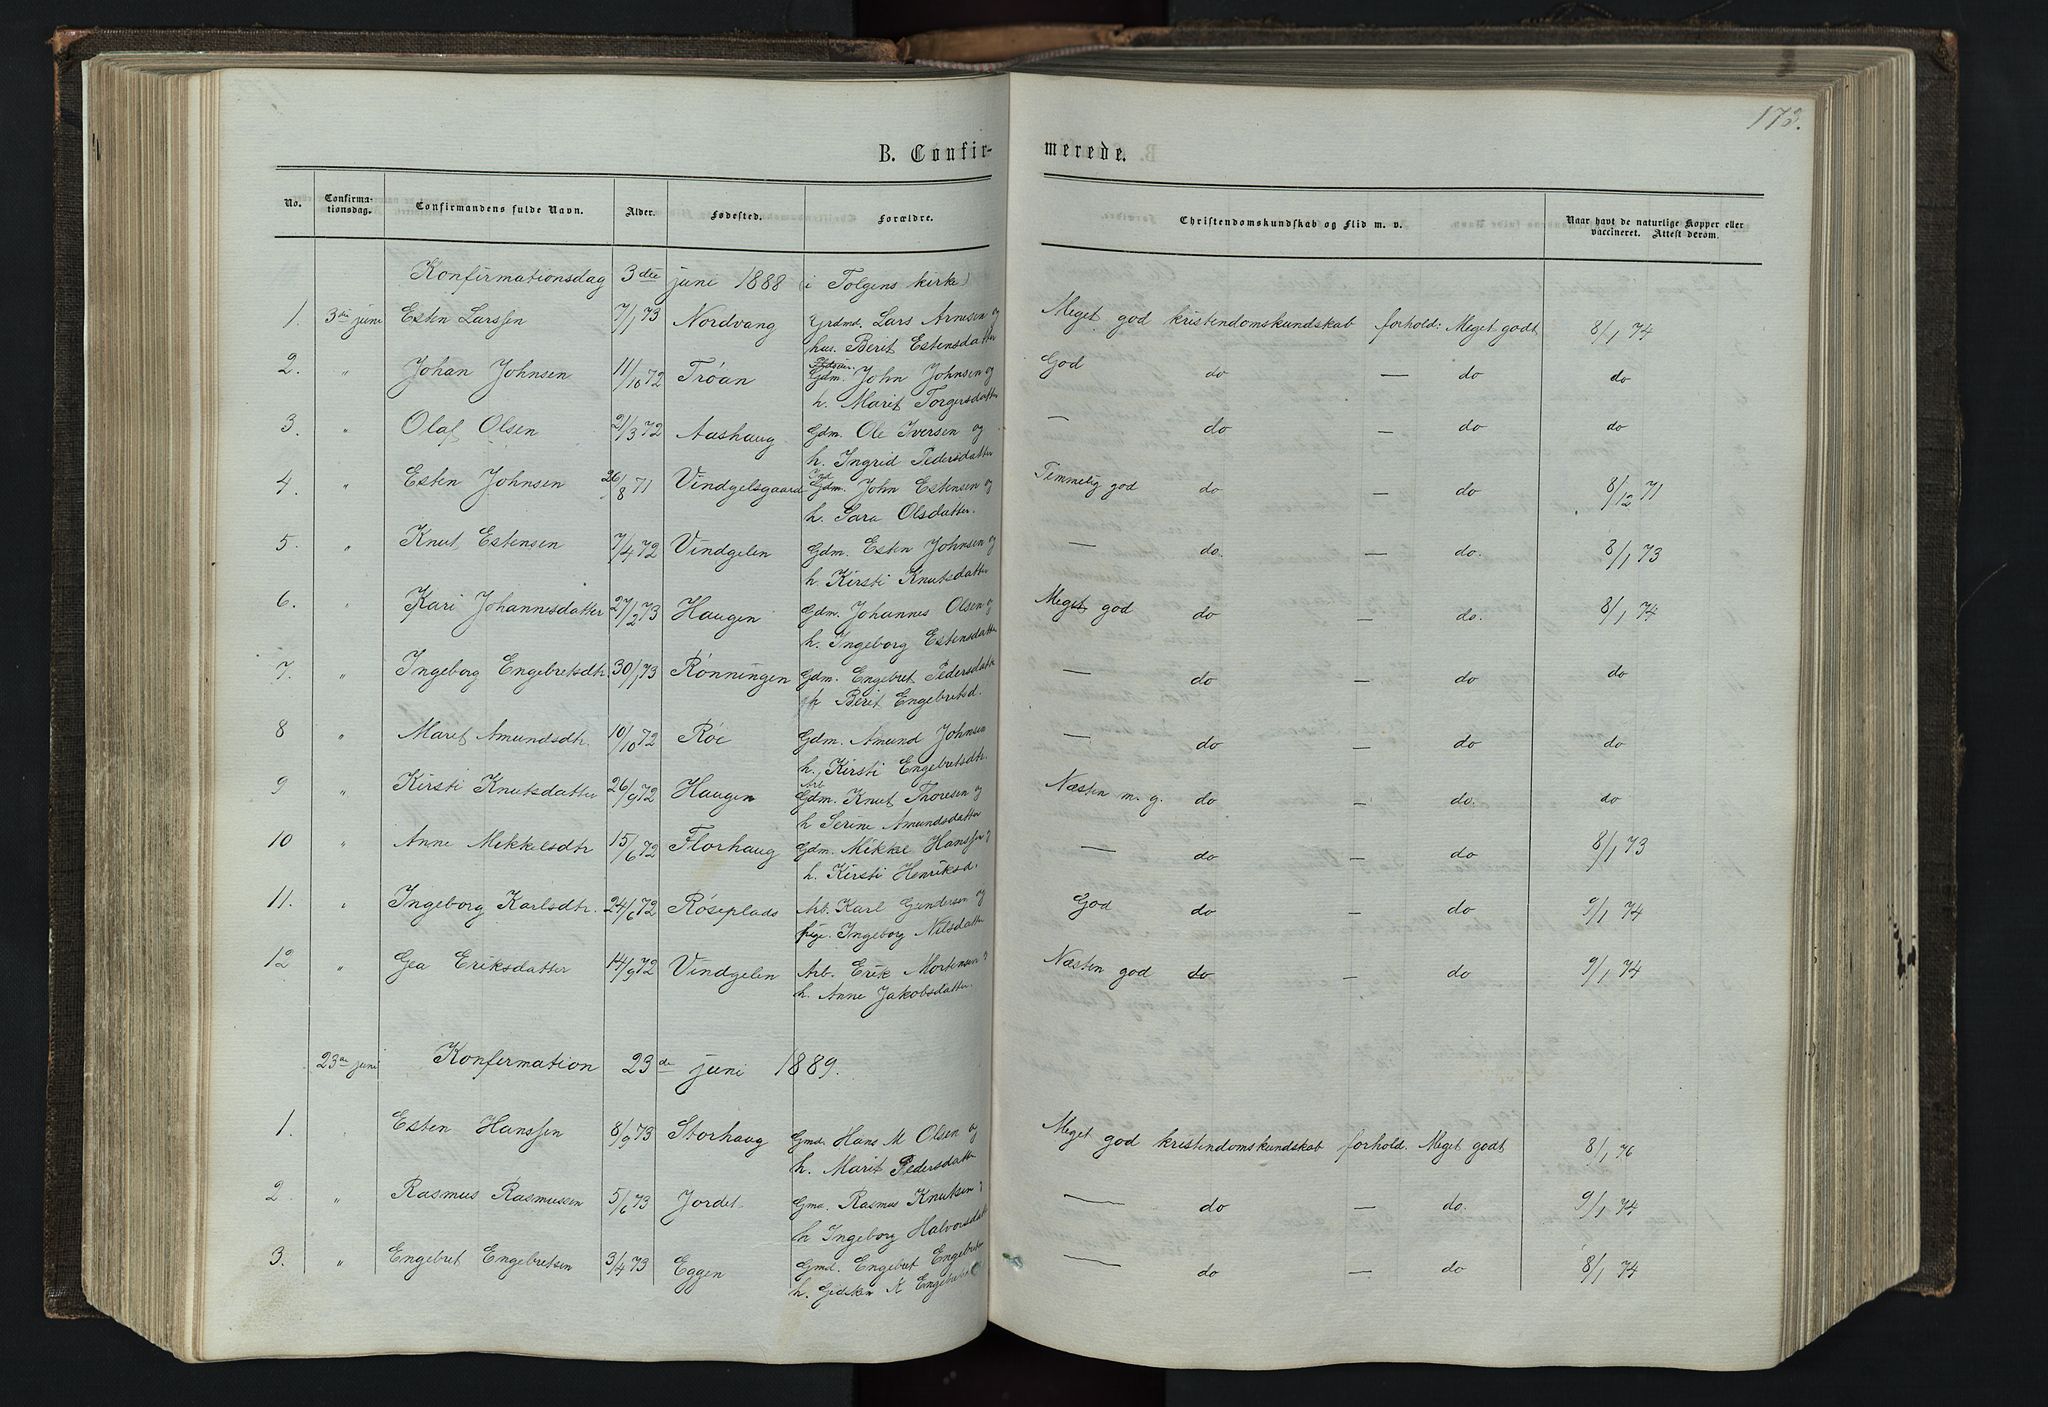 173.
B. Confirmerede.
No. Confirmationsdag. Confirmandens fulde Navn. Alder. Fødested. Forældre. Christendomskundskab og Flid m. v. Naar havt de naturlige Kopper eller vaccineret. Attest derom.
Konfirmationsdag 3die juni 1888 (i Tolgens kirke)
1. 3die juni Esten Larssen 7/1 73 Nordvang Grdmd. Lars Arnesen og Meget god kristendomskundskab forhold: Meget godt 8/1 74
hus. Berit Estensdatter
2. " Johan Johnsen 11/10 72 Trøan Gdm. John Johnsen og God do — do do
h. Marit Torgersdatter
3. " Olaf Olsen 21/3 72 Aashaug Gdm. Ole Iversen og — do — do do
h. Ingrid Pedersdatter
4. " Esten Johnsen 26/8 71 Vindgelsgaard Ind Gdm. John Estensen og Temmelig god do — do 8/12 71
h. Sara Olsdatter.
5. " Knut Estensen 7/4 72 Vindgelen Gdm. Esten Johnsen og — do. — do. 8/1 73
h. Kirsti Knutsdatter
6. " Kari Johannesdatter 27/2 73 Haugen Gdm. Johannes Olsen og Meget god do — do. 8/1 74
h. Ingeborg Estensdatter
7. " Ingeborg Engebretsdtr. 30/1 73 Rønningen Gdm. Engebret Pedersdatte — do — do do
h Berit Engebretsd.
8 " Marit Amundsdtr. 10/10 72 Røe Gdm. Amund Johnsen — do — do do
h. Kirsti Engebretsdtr.
9 " Kirsti Knutsdatter 26/9 72 Haugen Arb Gdm. Knut Thoresen og Næsten m. g. do — do. do
h Serine Amundsdatter
10 " Anne Mikkelsdtr 15/6 72 Florhaug Gdm. Mikkel Hanssen og — do — do 8/1 73
h. Kirsti Henriksd.
11. " Ingeborg Karlsdtr. 24/6 72 Røseplads Arb. Karl Gundersen og God do — do 9/1 74
pige. Ingeborg Nilsdatter
12 " Gea Eriksdatter 14/9 72 Vindgelen Arb. Erik Mortensen og Næsten god do — do 9/1 74
h. Anne Jakobsdatter.
23de juni Konfirmation 23de juni 1889.
1. Esten Hanssen 8/9 73 Storhaug Gmd. Hans M Olsen og Meget god kristendomskundskab forhold. Meget godt 8/1 76
h. Marit Pedersdatter
2. " Rasmus Rasmussen 5/6 73 Jordet Gmd. Rasmus Knutsen og — do — do. 9/1 74
h Ingeborg Halvorsdatt
3. " Engebret Engebretsen 3/4 73 Eggen Gmd. Engebret Engebretsen — do — do 8/1 74
h. Gidsken K Engebretsd